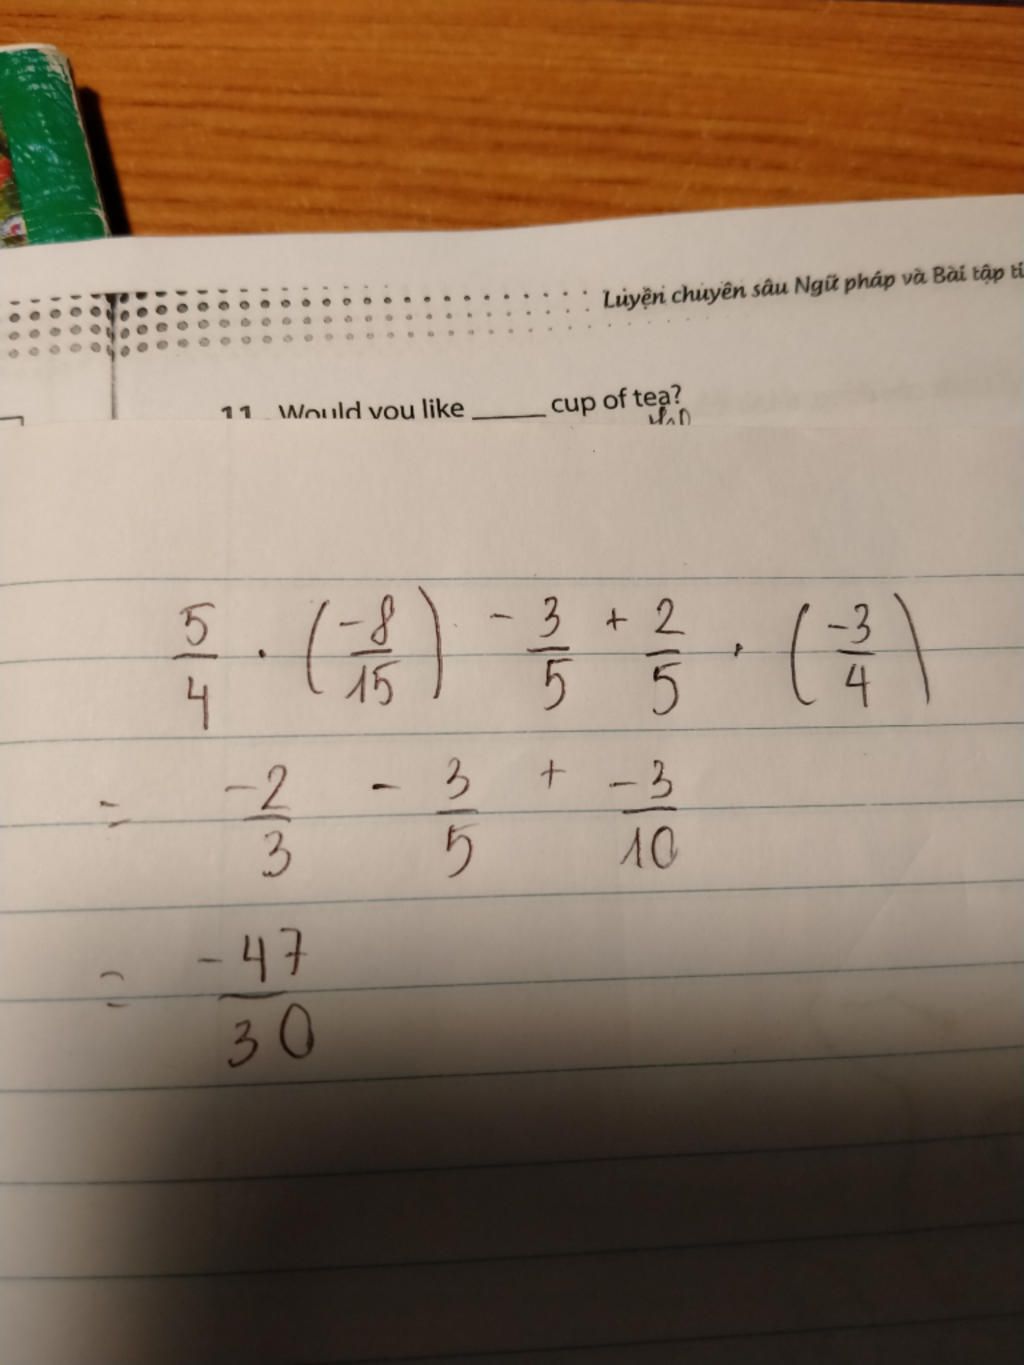 Luyện chuyên sâu Ngữ pháp và Bài tập ti
11. Would you like _____ cup of tea?
5/4 . (-8/15) - 3/5 + 2/5 . (-3/4)
= -2/3 - 3/5 + -3/10
= -47/30